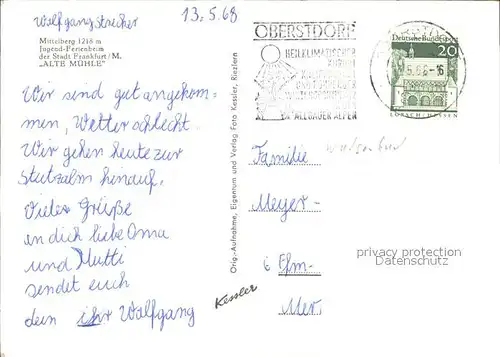 Wolfgang Strecker
13.5.68
Mittelberg 1218 m
Jugend-Ferienheim
der Stadt Frankfurt/M.
„ALTE MÜHLE"
Wir sind gut angekom-
men, Wetter schlecht.
Wir gehen heute zur
Stutzalm hinauf.
Viele Grüße
an dich liebe Oma
und Mutti
sendet euch
dein ihr Wolfgang
Orig.-Aufnahme, Eigentum und Verlag Foto Kessler, Riezlern
Kessler
OBERSTDORF
HEILKLIMATISCHER
KURORT
ALLGÄUER ALPEN
Deutsche Bundespost
20
LORSCH/HESSEN
Familie
Meyer-
6 Ffm-
Mer.
privacy protection
Datenschutz